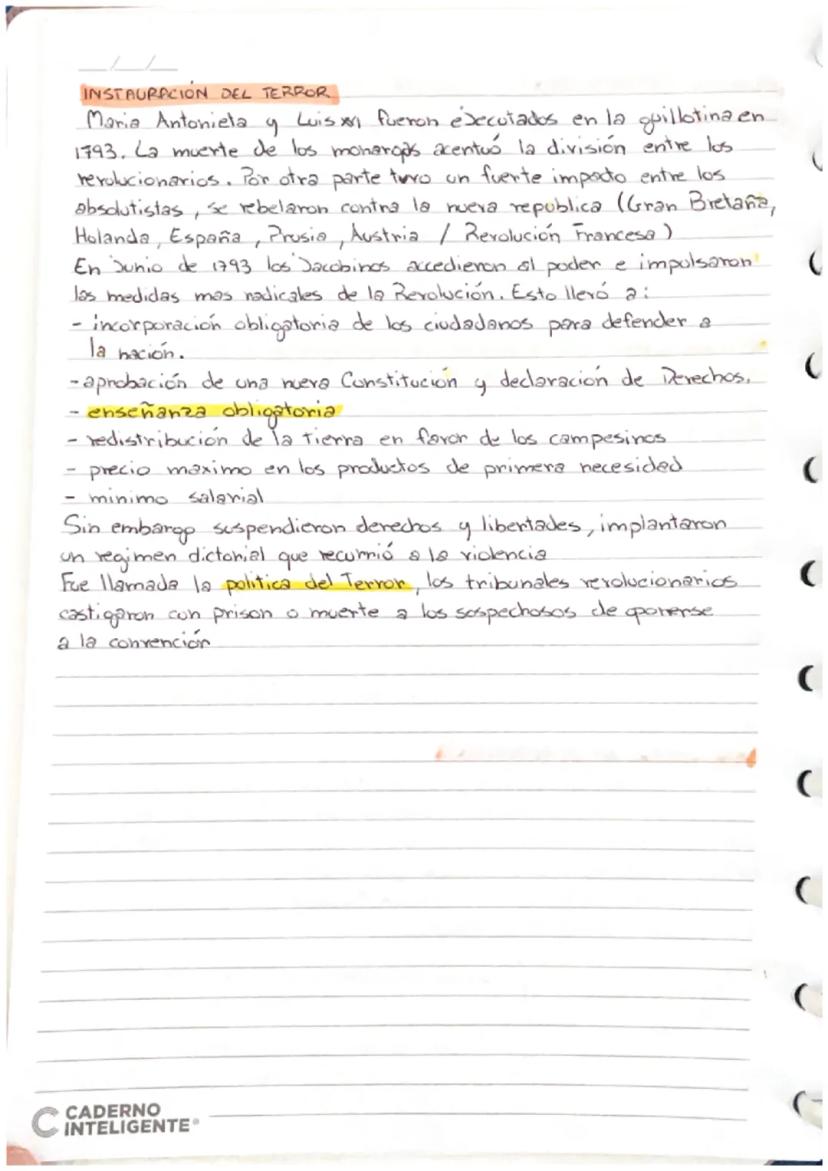 __/__/__
INSTAURACIÓN DEL TERROR
Maria Antonieta y Luis XVI fueron éjecutados en la guillotina en
1793. La muerte de los monarcas acentuó la división entre los
revolucionarios. Por otra parte tuvo un fuerte impacto entre los
absolutistas, se rebelaron contra la nueva republica (Gran Bretaña,
Holanda, España, Prusia, Austria / Revolución Francesa)
En Junio de 1793 los Jacobinos accedieron al poder e impulsaron
las medidas mas radicales de la Revolución. Esto llevó a:
- incorporación obligatoria de los ciudadanos para defender a
la nación.
- aprobación de una nueva Constitución y declaración de Derechos.
- enseñanza obligatoria
- redistribución de la tierra en favor de los campesinos
- precio maximo en los productos de primera necesidad
- minimo salarial
Sin embargo suspendieron derechos y libertades, implantaron
un regimen dictorial que recurrió a la violencia
Fue llamada la politica del Terror, los tribunales revolucionarios
castigaron con prison o muerte a los sospechosos de oponerse
a la convención
CADERNO
INTELIGENTE®